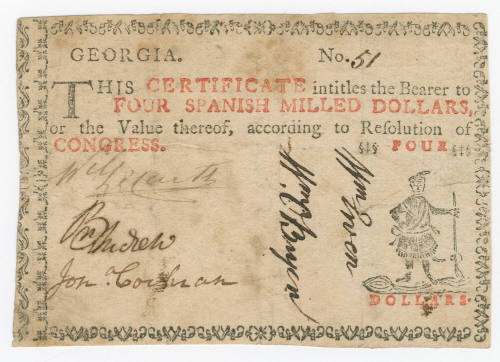 GEORGIA. No. 51
THIS CERTIFICATE intitles the Bearer to
FOUR SPANISH MILLED DOLLARS,
or the Value thereof, according to Resolution of
CONGRESS. ‡§‡ FOUR ‡§‡
Wm
Andrew
Jon. Cochran
Wm
DOLLARS.